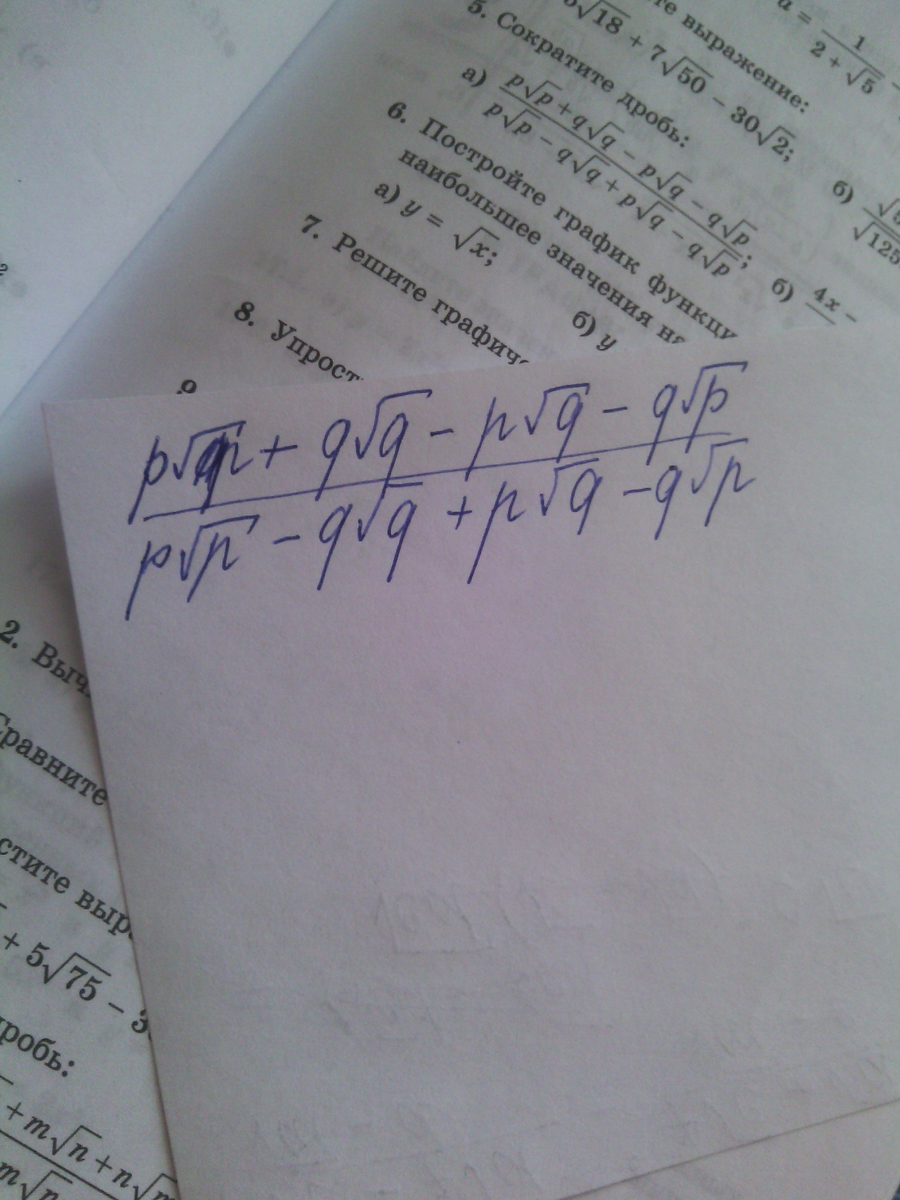 a = 1/(2 + √5) −
те выражение:
√18 + 7√50 − 30√2;
б)
√125
5. Сократите дробь:
а) (p√p + q√q − p√q − q√p)/(p√p − q√q + p√q − q√p);
б) 4x −
6. Постройте график функци
наибольшее значения на
а) y = √x;
б) y
7. Решите графиче
8. Упрост
9
p√p + q√q − p√q − q√p
p√p − q√q + p√q − q√p
2
2. Выч
Сравните
стите выра
+ 5√75 − 3
робь:
+ m√n + n√m
m√n